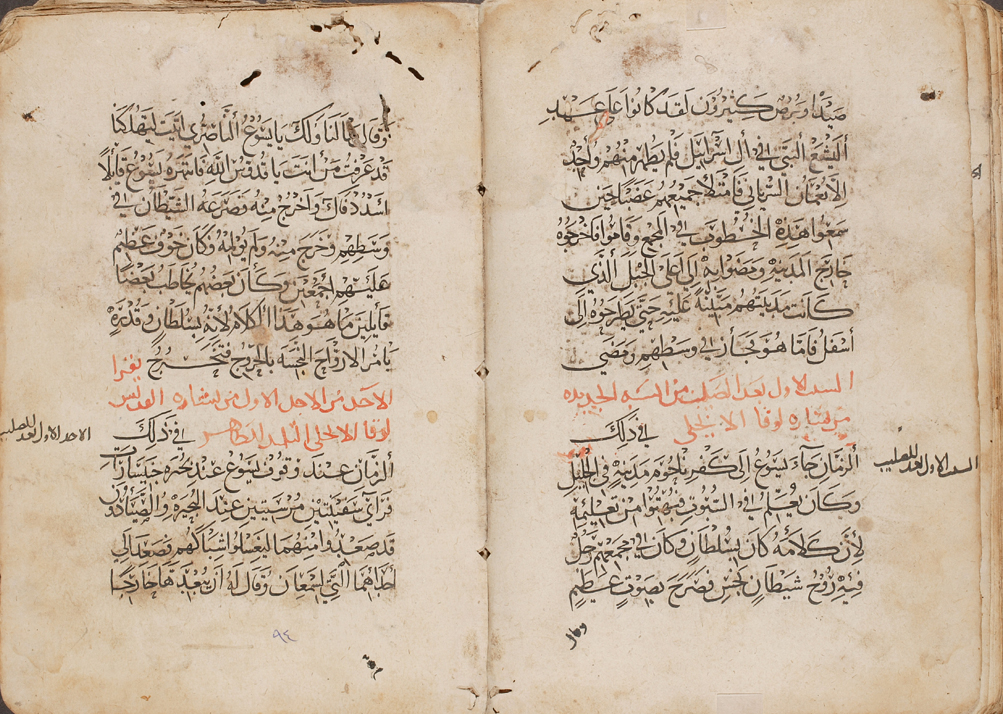 صيدا وبرص كثيرون لقد كانوا على عهد
اليشع النبي في ال اسراييل فلم يطهر منهم واحد
الا نعمان السرياني فامتلا جميعهم غضبا حين
سمعوا هذه الخطوب في المجمع وقاموا فاخرجوه
خارج المدينه ومضوا به الى اعلى الجبل الذي
كانت مدينتهم مبنية عليه حتى يطرحوه الى
اسفل فاما هو فجاز في وسطهم ومضى
السبت الاول بعد الصليب من السنه الجديده
من بشاره لوقا الانجيلي
في ذلك
الزمان جاء يسوع الى كفرناحوم مدينه في الجليل
وكان يعلم في السبوت فبهتوا من تعليمه
لان كلامه كان بسلطان وكان في مجمعهم رجل
فيه روح شيطان نجس فصرخ بصوت عظيم
وقال
السبت الاول بعد الصليب
وقال ما لنا ولك يا يسوع الناصري اتيت لتهلكنا
قد عرفت من انت يا قدوس الله فانتهره يسوع قايلا
اسدد فاك واخرج منه فصرعه الشيطان في
وسطهم وخرج منه ولم يولمه وكان خوف عظيم
عليهم اجمعين وكان بعضهم يخاطب بعضا
قايلين ما هو هذا الكلام لانه بسلطان وقدرة
يامر الارواح النجسه بالخروج فتخرج يقرا
الاحد من الاحد الاول من بشاره القديس
لوقا الانجيلي التلميذ الطاهر في ذلك
الزمان عند وقوف يسوع عند بحيره جيسارات
فراى سفينتين مرسيتين عند البحيره والصيادون
قد صعدوا منهما ليغسلوا شباكهم فصعد الى
احداهما التي لسمعان وقال له ان يبعدها خارجا
الاحد الاول بعد الصليب
٩٤